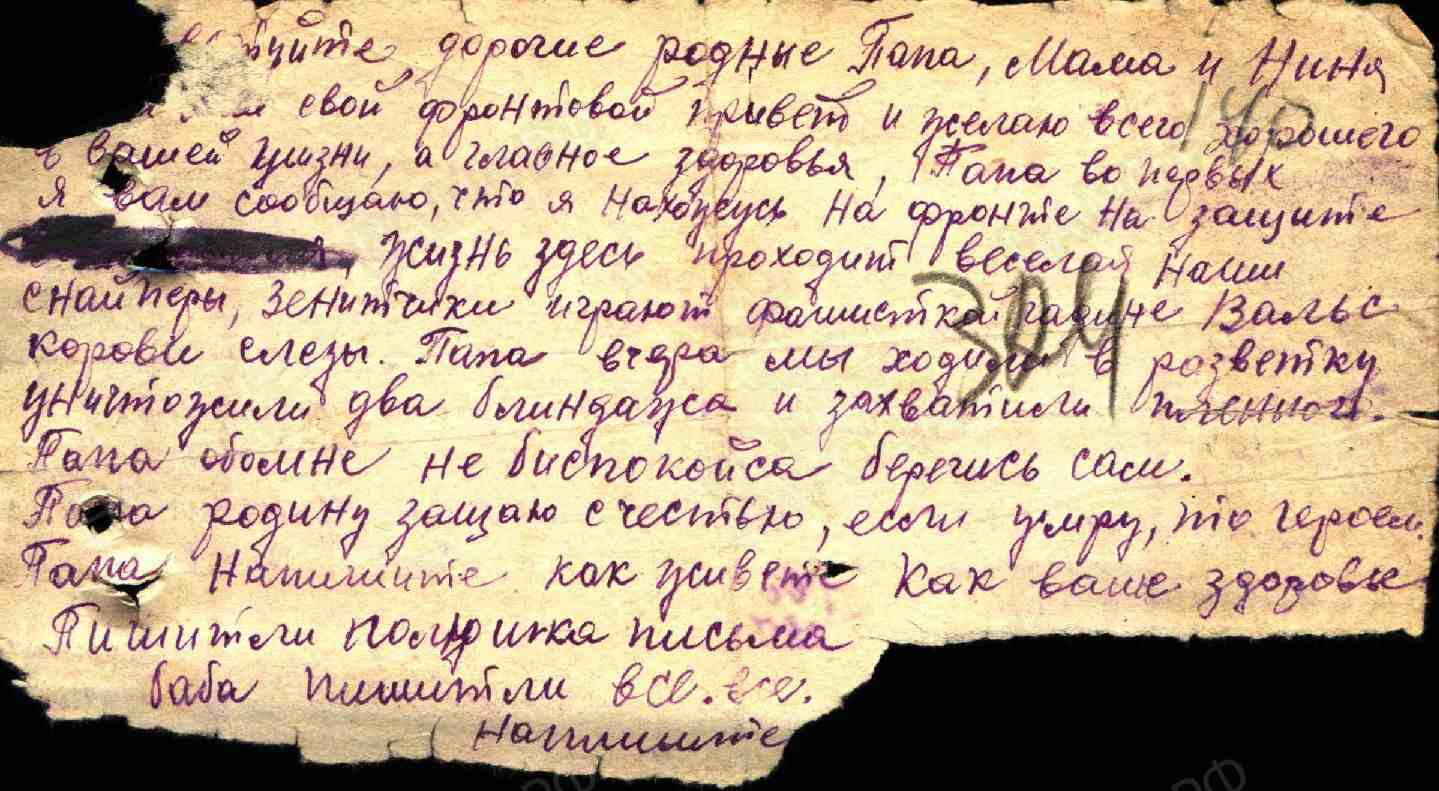 туйте дорогие родные Папа, Мама и Нина
м свой фронтовой привет и желаю всего хорошего
в вашей жизни, а главное здоровья, Папа во первых
я вам сообщаю, что я нахожусь на фронте на защите
жизнь здесь проходит веселая наши
снайперы, зенитчики играют фашисткой гадине Вальс
корови слезы. Папа вчера мы ходили в розветку
уничтожили два блиндажа и захватили
Папа обомне не биспокойса беречись сам.
Папа родину защаю с честью, если умру, то героем.
Папа Напишите как живете Как ваше здоровье
Пишитли письма
баба пишитли все. все.
Напишите
304
140